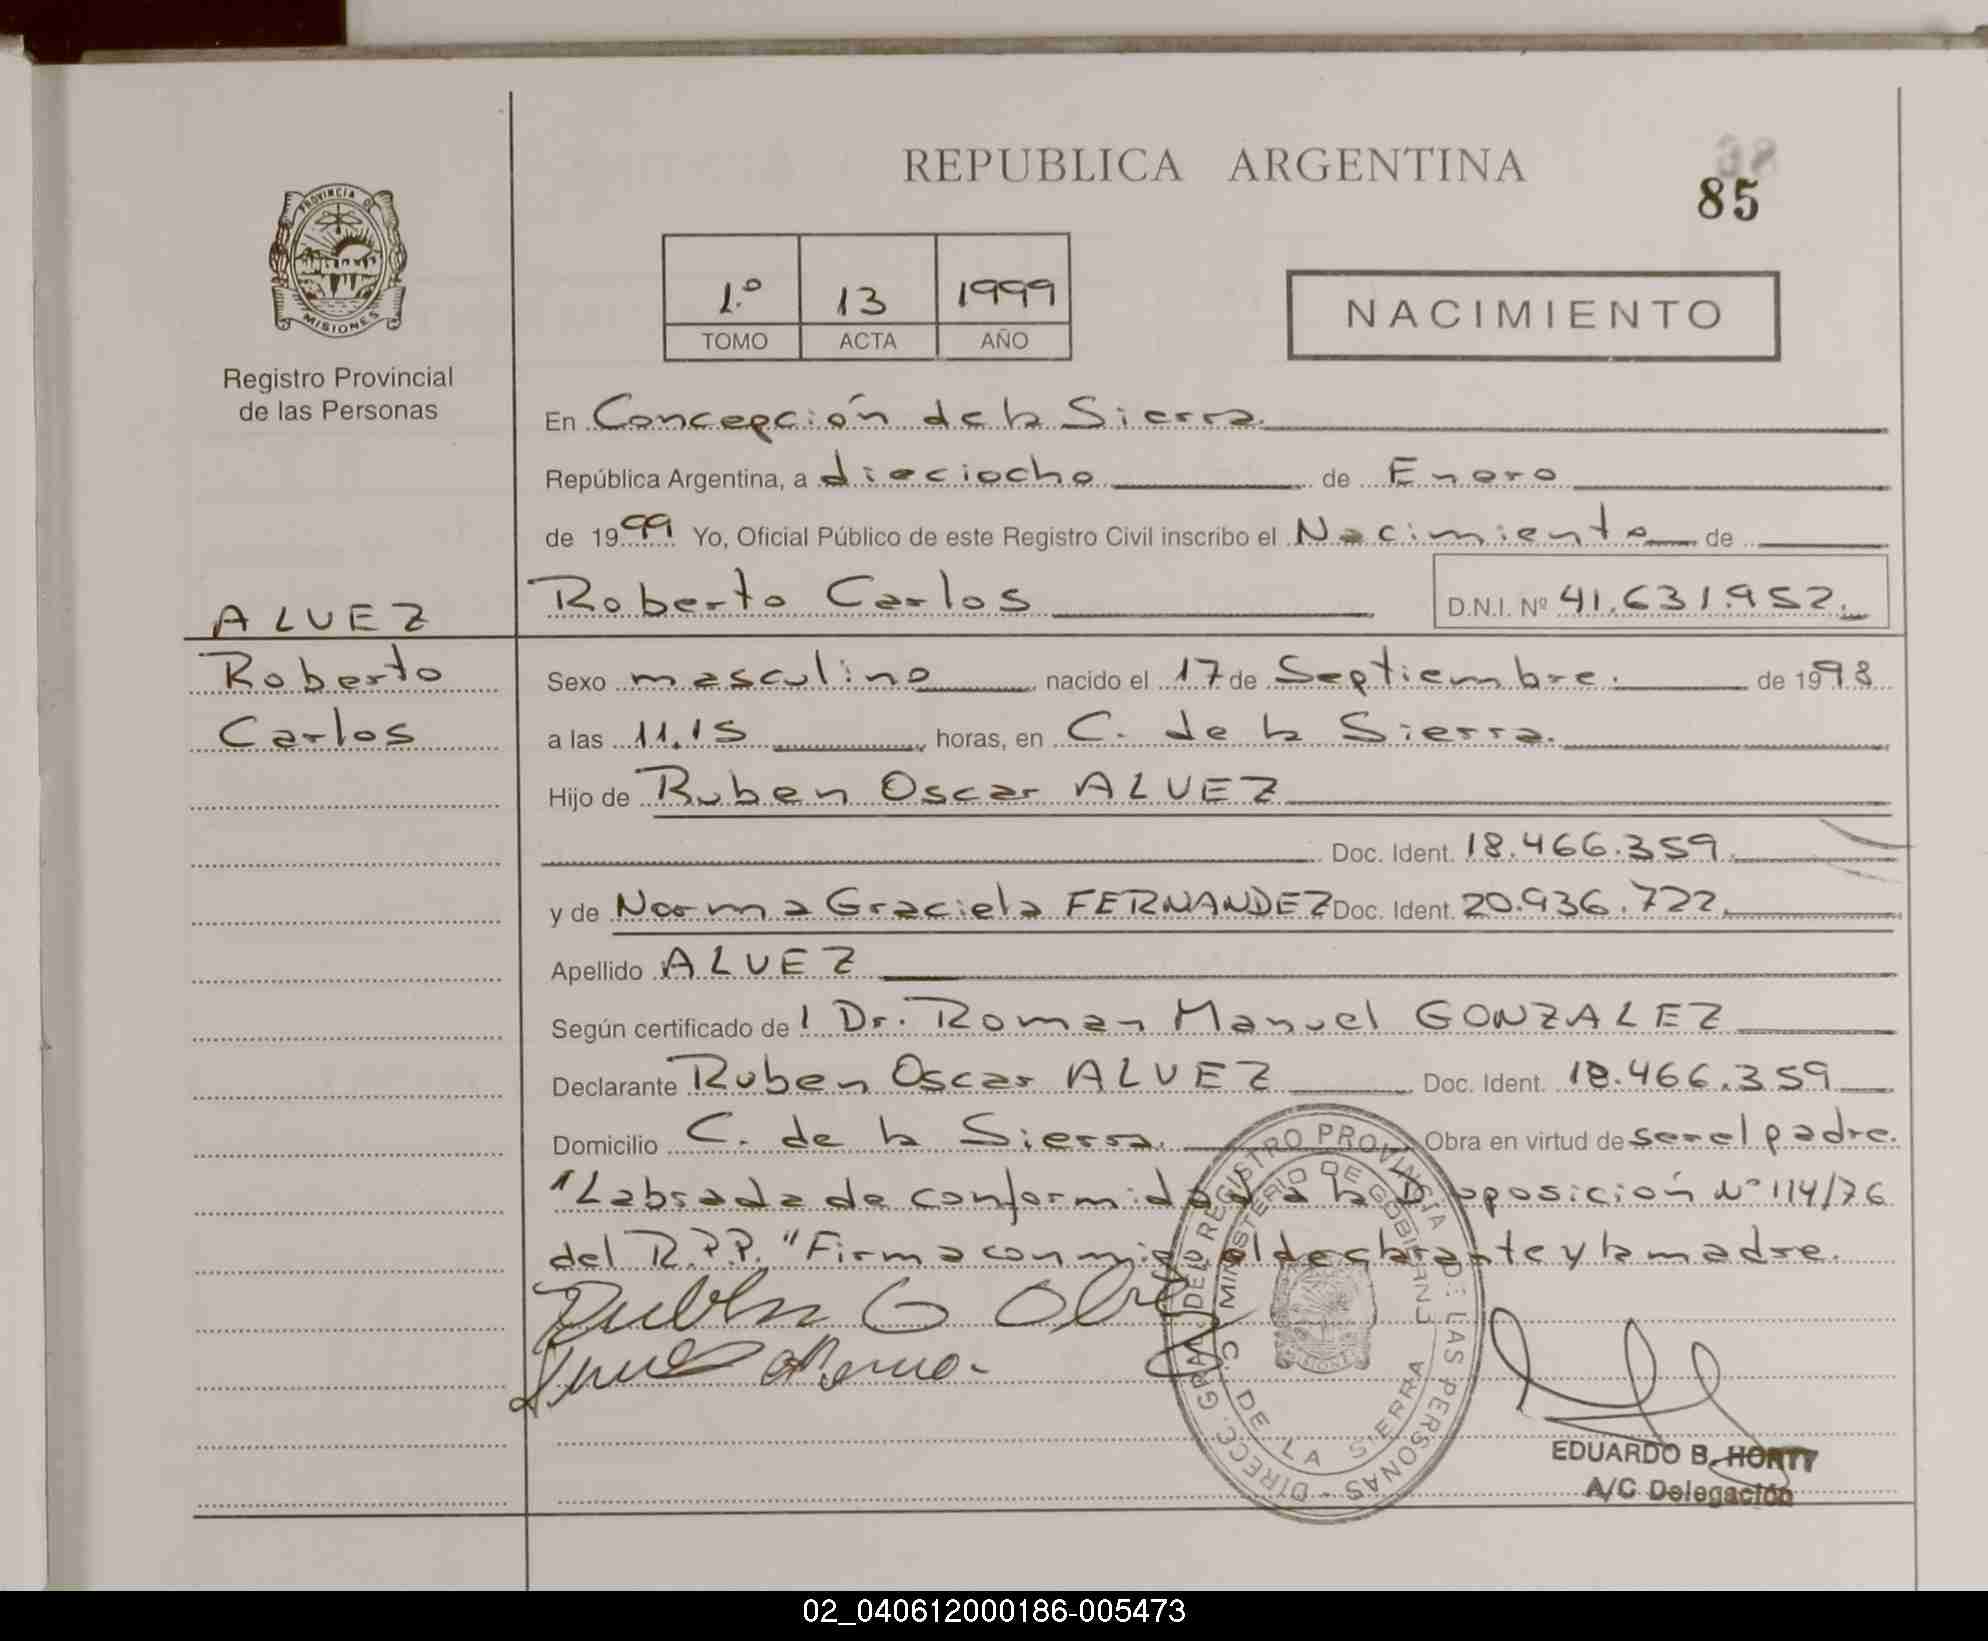 REPUBLICA ARGENTINA
85
PROVINCIA DE
MISIONES
Registro Provincial
de las Personas
1.º 13 1999
TOMO ACTA AÑO
NACIMIENTO
En Concepción de la Sierra.
República Argentina, a dieciocho de Enero
de 1999 Yo, Oficial Público de este Registro Civil inscribo el Nacimiento de
Roberto Carlos D.N.I. Nº 41.631.952.
ALVEZ
Roberto
Carlos
Sexo masculino nacido el 17 de Septiembre. de 1998
a las 11.15, horas, en C. de la Sierra.
Hijo de Ruben Oscar ALVEZ
Doc. Ident. 18.466.359.
y de Norma Graciela FERNANDEZ Doc. Ident. 20.936.722.
Apellido ALVEZ
Según certificado de l Dr. Roman Manuel GONZALEZ
Declarante Ruben Oscar ALVEZ Doc. Ident. 18.466.359
Domicilio C. de la Sierra. Obra en virtud de ser el padre.
"Labrada de conformidad a la Disposición Nº 114/76
del R.P.P." Firma conmigo el declarante y la madre.
DIRECC. GRAL. DEL REGISTRO PROVINCIAL DE LAS PERSONAS -
MINISTERIO DE GOBIERNO
C. DE LA SIERRA
EDUARDO B. HORTY
A/C Delegación
02_040612000186-005473